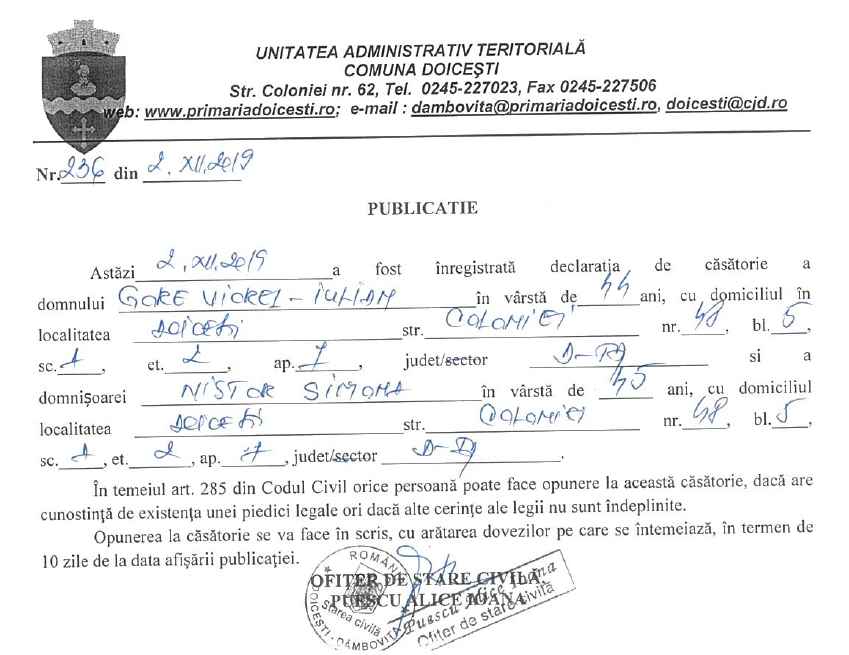 UNITATEA ADMINISTRATIV TERITORIALĂ
COMUNA DOICEŞTI
Str. Coloniei nr. 62, Tel. 0245-227023, Fax 0245-227506
web: www.primariadoicesti.ro; e-mail : dambovita@primariadoicesti.ro, doicesti@cjd.ro
Nr. 236 din 2. XII.2019
PUBLICATIE
Astăzi 2.XII.2019 a fost înregistrată declaratia de căsătorie a
domnului GORE VIOREL-IULIAN în vârstă de 44 ani, cu domiciliul în
localitatea DOICEȘTI str. COLONIEI nr. 48, bl. 5,
sc. 1, et. 2, ap. 7, judet/sector D-ȚA si a
domnişoarei NISTOR SIMONA în vârstă de 45 ani, cu domiciliul
localitatea DOICEȘTI str. COLONIEI nr. 48, bl. 5,
sc. 1, et. 2, ap. 7, judet/sector D-ȚA.
În temeiul art. 285 din Codul Civil orice persoană poate face opunere la această căsătorie, dacă are
cunostinţă de existenţa unei piedici legale ori dacă alte cerinţe ale legii nu sunt îndeplinite.
Opunerea la căsătorie se va face în scris, cu arătarea dovezilor pe care se întemeiază, în termen de
10 zile de la data afişării publicaţiei.
OFITER DE STARE CIVILĂ
PUESCU ALICE IOANA
Puescu Alice Ioana
Ofiter de stare civilă
ROMÂN
Starea civilă
DOICEŞTI - DÂMBOVIŢA